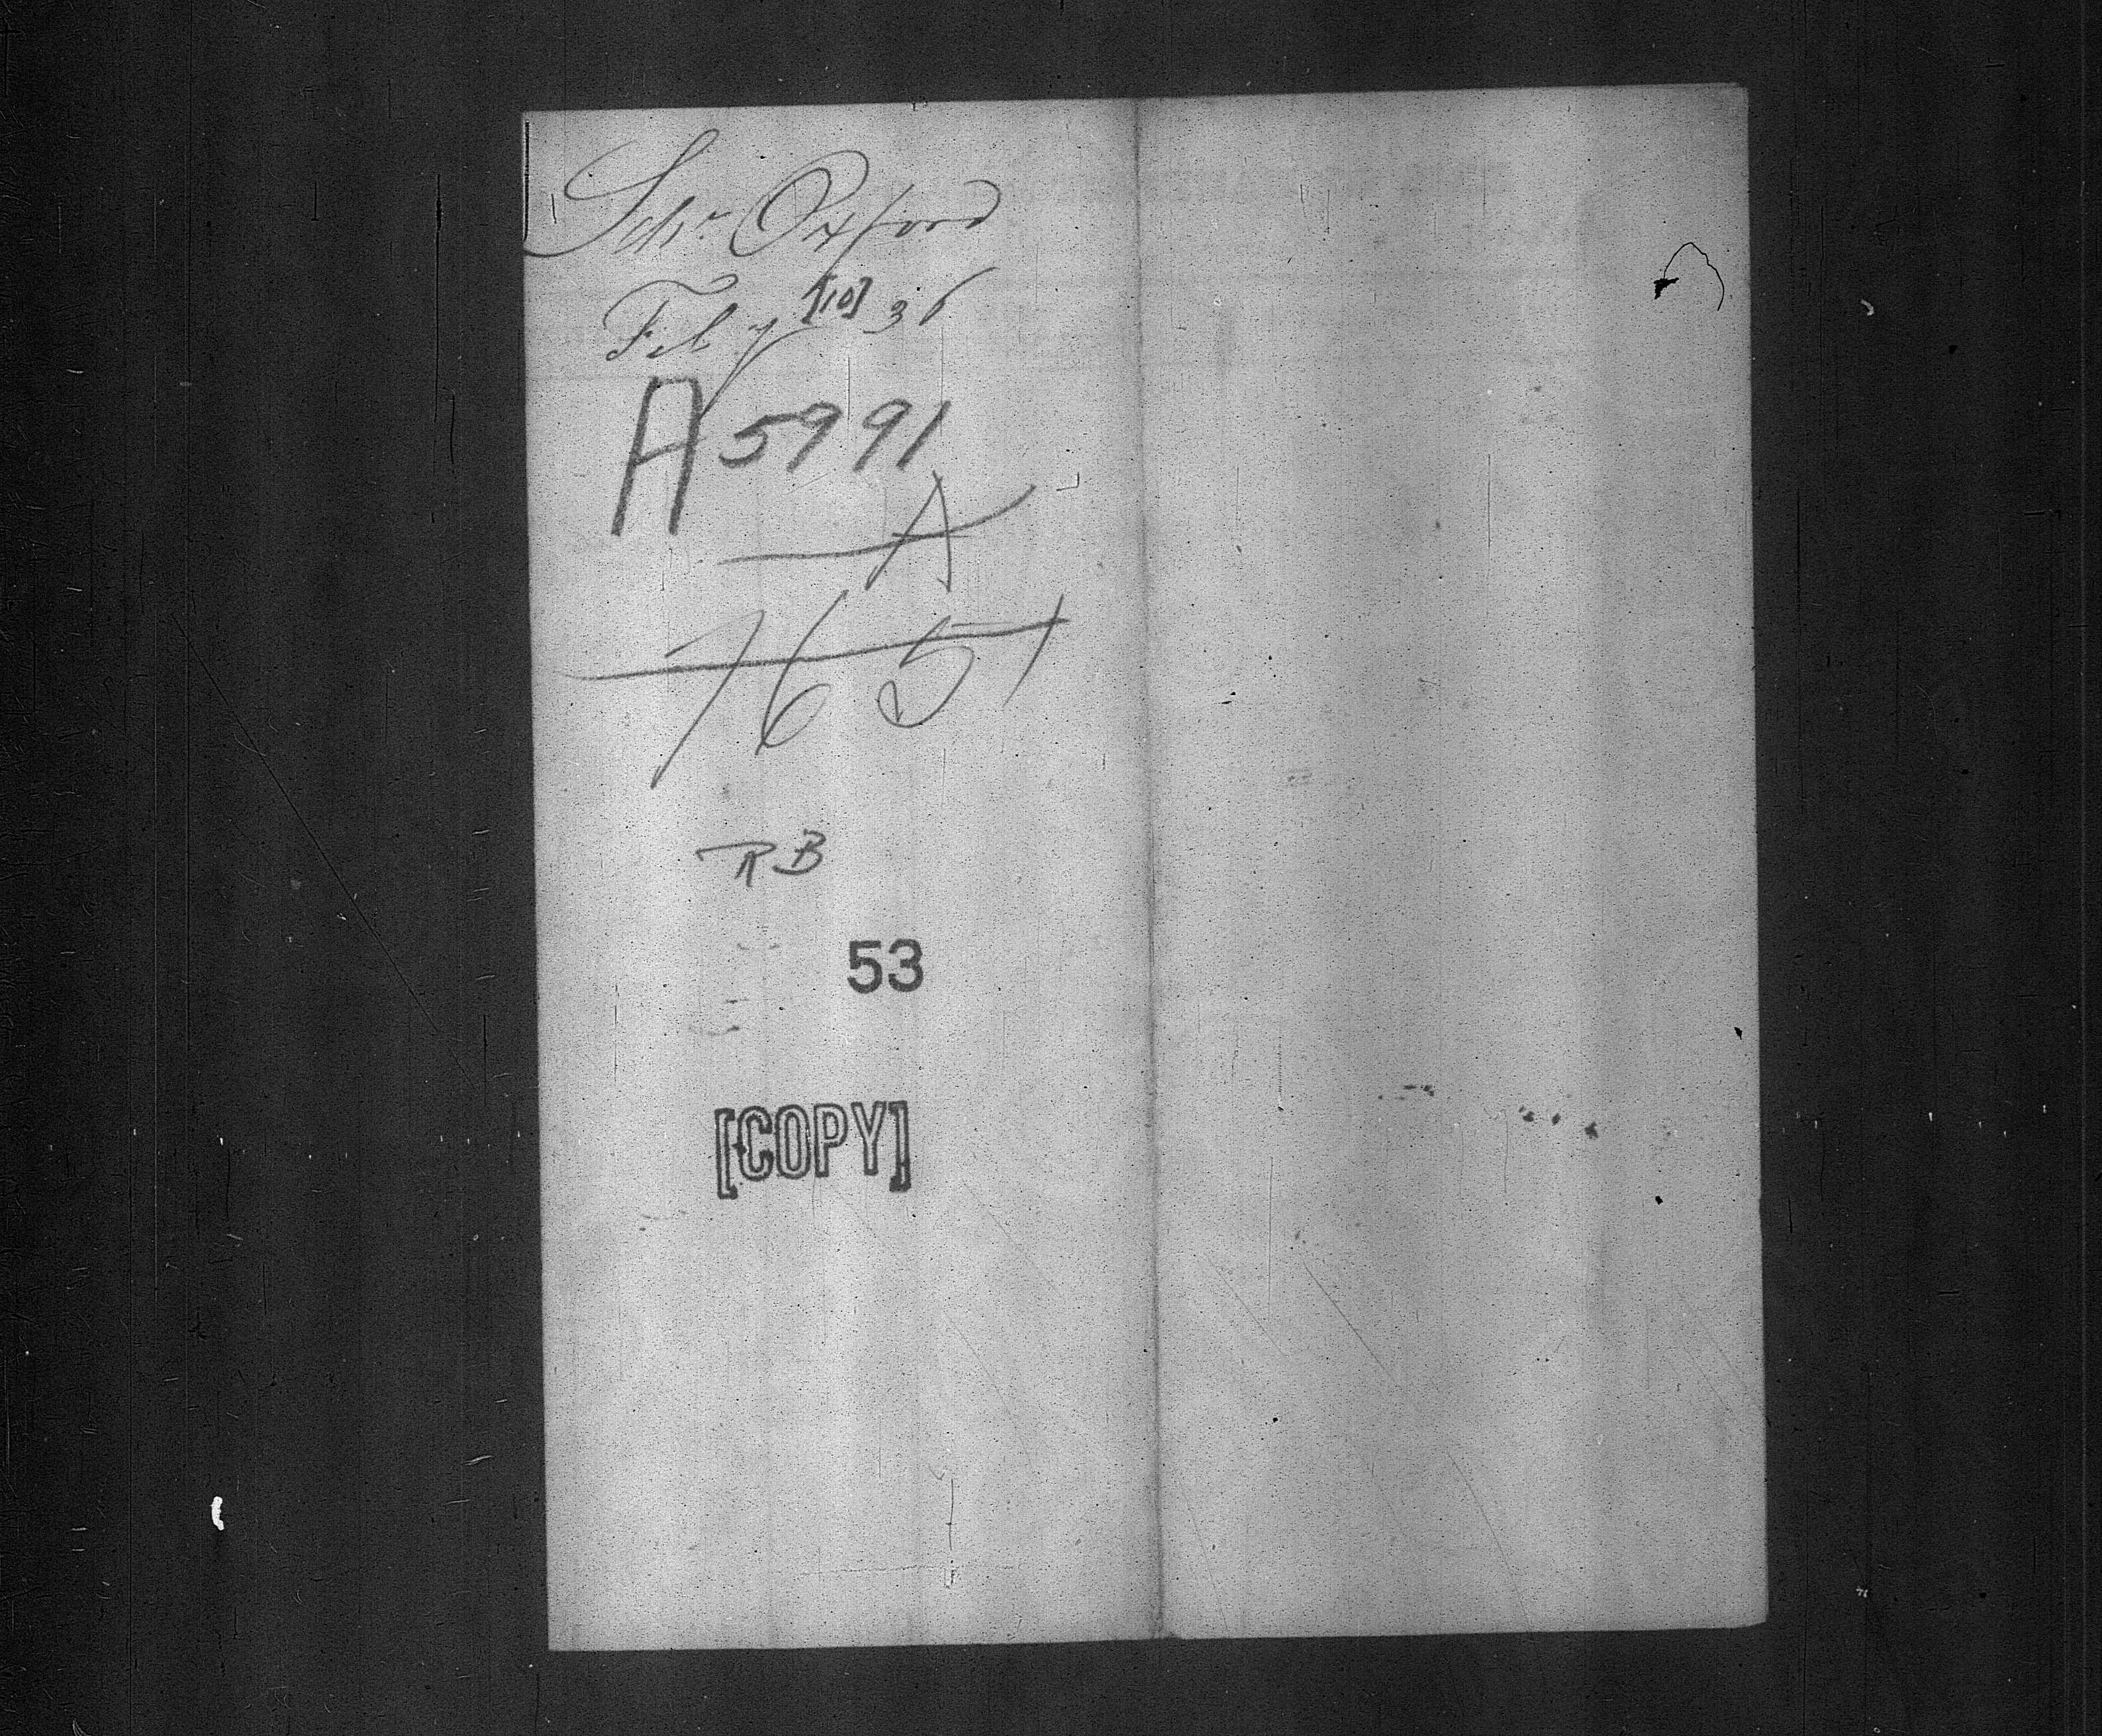 Schr. Oxford
Feby [10] 36
A 5991
A
7651
RB
53
[COPY]